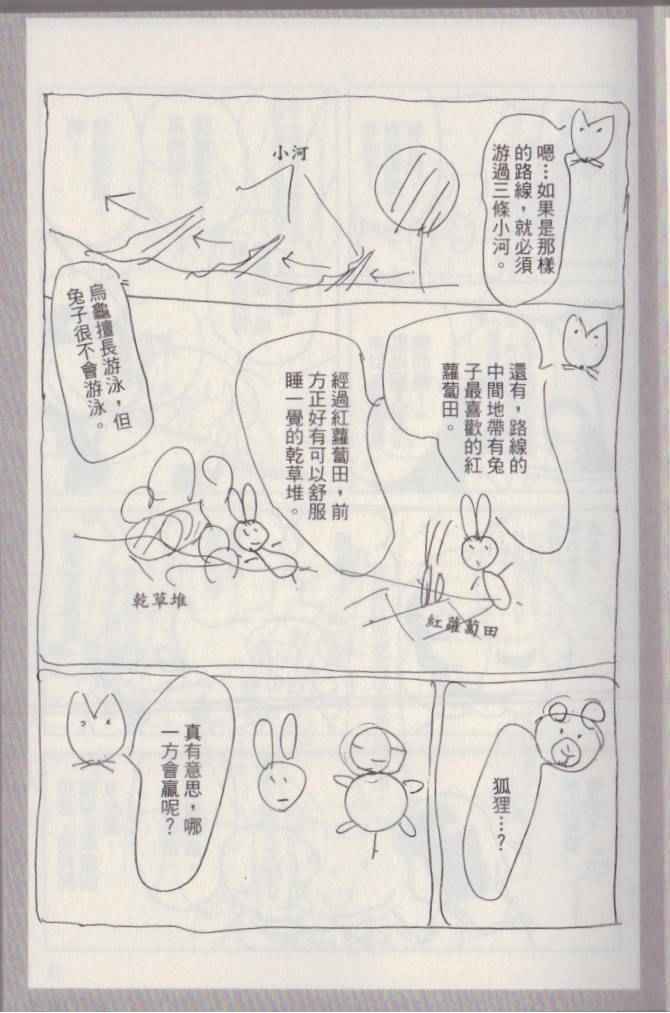 嗯…如果是那樣
的路線，就必須
游過三條小河。
小河
還有，路線的
中間地帶有兔
子最喜歡的紅
蘿蔔田。
經過紅蘿蔔田，前
方正好有可以舒服
睡一覺的乾草堆。
烏龜擅長游泳，但
兔子很不會游泳。
紅蘿蔔田
乾草堆
狐狸…？
真有意思，哪
一方會贏呢？